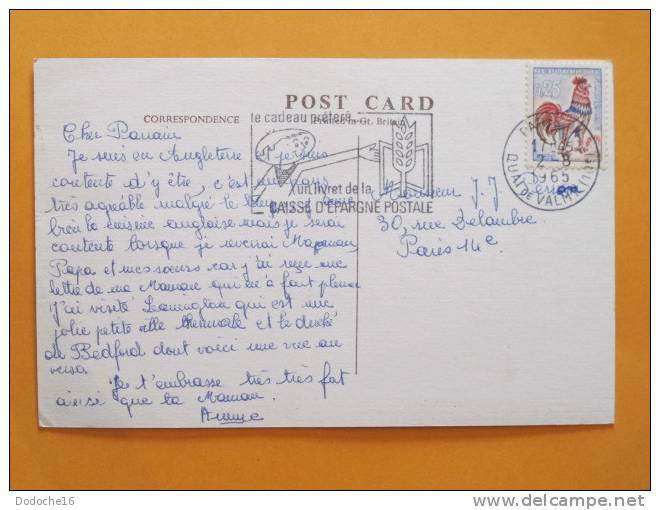 POST CARD
CORRESPONDENCE
Printed in Gt. Britain
le cadeau préféré
un livret de la
CAISSE D'ÉPARGNE POSTALE
0,25
17 H 45
2 - 8
1965
QUAI DE VALMY
Cher Parrain
Je suis en Angleterre et je suis
contente d'y être, c'est un pays
très agréable malgré le temps. J'aime
bien la cuisine anglaise mais je serai
contente lorsque je reverrai Maman
Papa et mes sœurs car j'ai reçu une
lettre de ma Maman qui m'a fait pleurer
J'ai visité Leamington qui est une
jolie petite ville thermale et le duché
de Bedford dont voici une vue au
verso.
Je t'embrasse très très fort
ainsi que ta Maman.
Monsieur J. J.
30, rue Delambre
Paris 14e
Dodoche16
delcampe.net